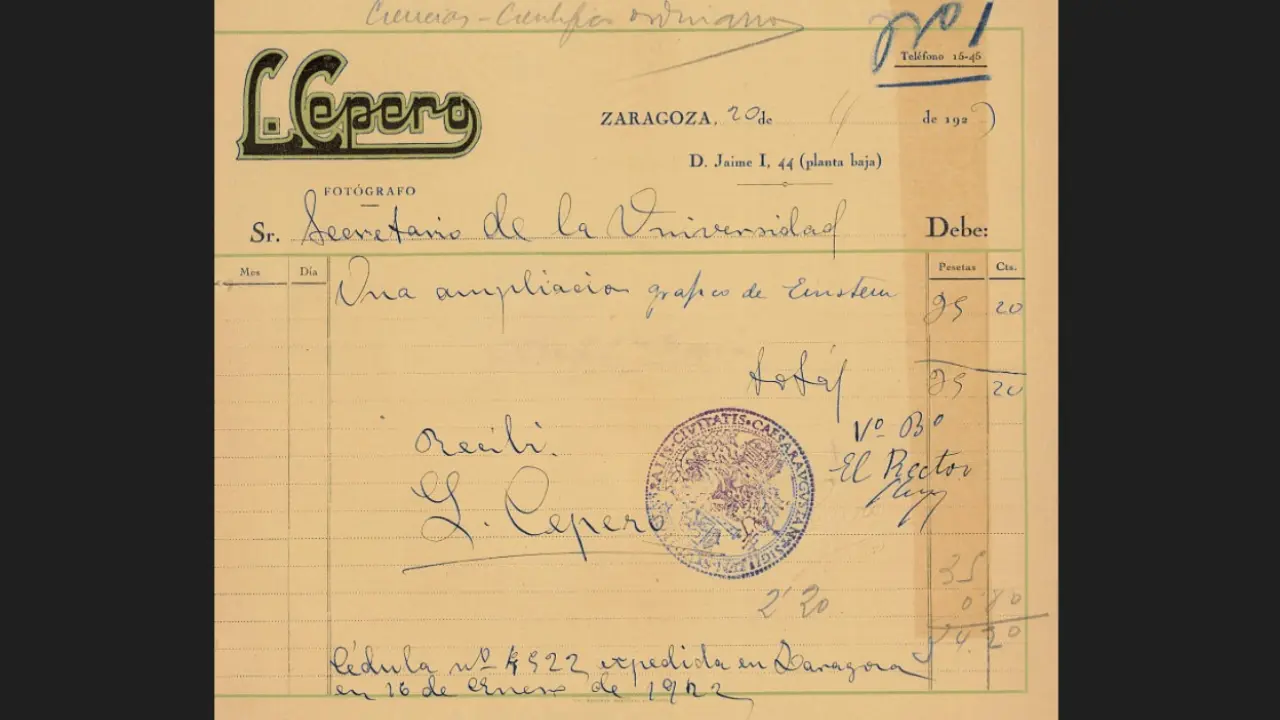 Ciencias - Científico ordinario
Teléfono 15-45
L. Cepero
FOTÓGRAFO
ZARAGOZA, 20 de 4 de 192
D. Jaime I, 44 (planta baja)
Sr. Secretario de la Universidad Debe:
Mes Día Pesetas Cts.
Una ampliacion de Einstein 20
total 20
Vº Bº
El Rector
Recibi.
L. Cepero
CIVITATIS CAESARAVGVSTAN
35
0
2'20
Cédula nº 4522 expedida en Zaragoza
en 16 de Enero de 1922